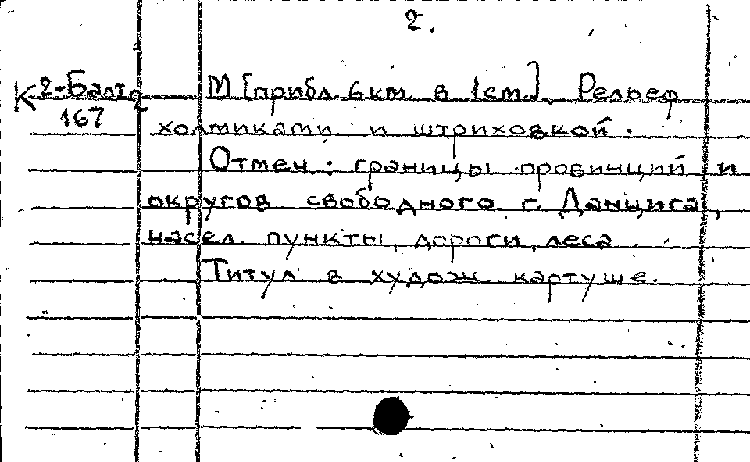 2.
К 2-Балт
167
М [прибл. 6 км в 1 см.]. Рельеф
холмиками и штриховкой.
Отмеч: границы провинций и
округов свободного г. Данцига,
насел. пункты, дороги, леса
Титул в худож картуше.